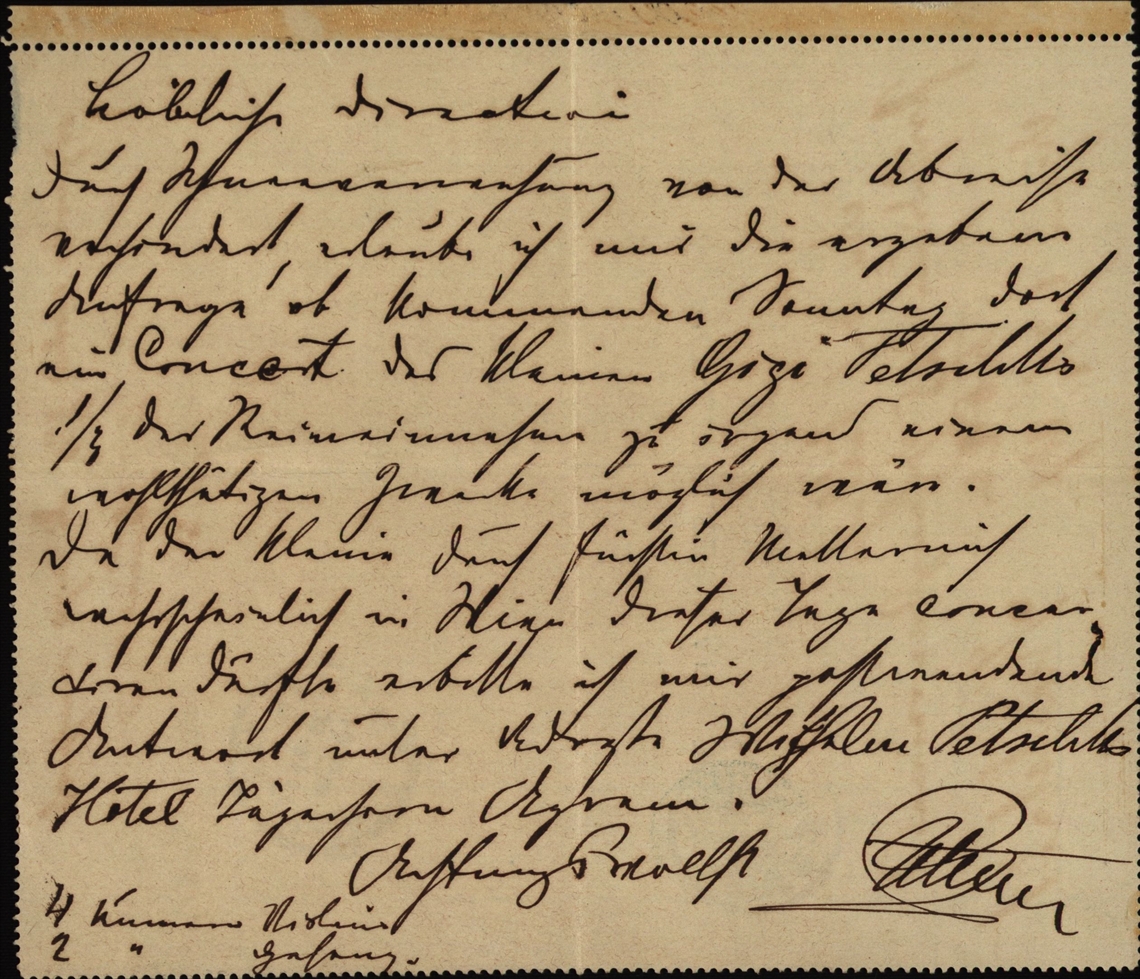 Löbliche Direction
Durch Schneeverwehung von der Abreise
verhindert, erlaube ich mir die ergebene
Anfrage ob kommenden Sonntag dort
ein Concert der kleinen Gizi Petschko
1/3 der Reineinnahme zu irgend einem
wohlthätigen Zwecke möglich wäre.
Da der Kleine durch Fürstin Metternich
wahrscheinlich in Wien dieser Tage concer
tiren dürfte erbitte ich mir postwendende
Antwort unter Adresse Wilhelm Petschko
Hôtel Jägerhorn Agram.
Achtungsvollst
4 Numern Violine
2 " Gesang.